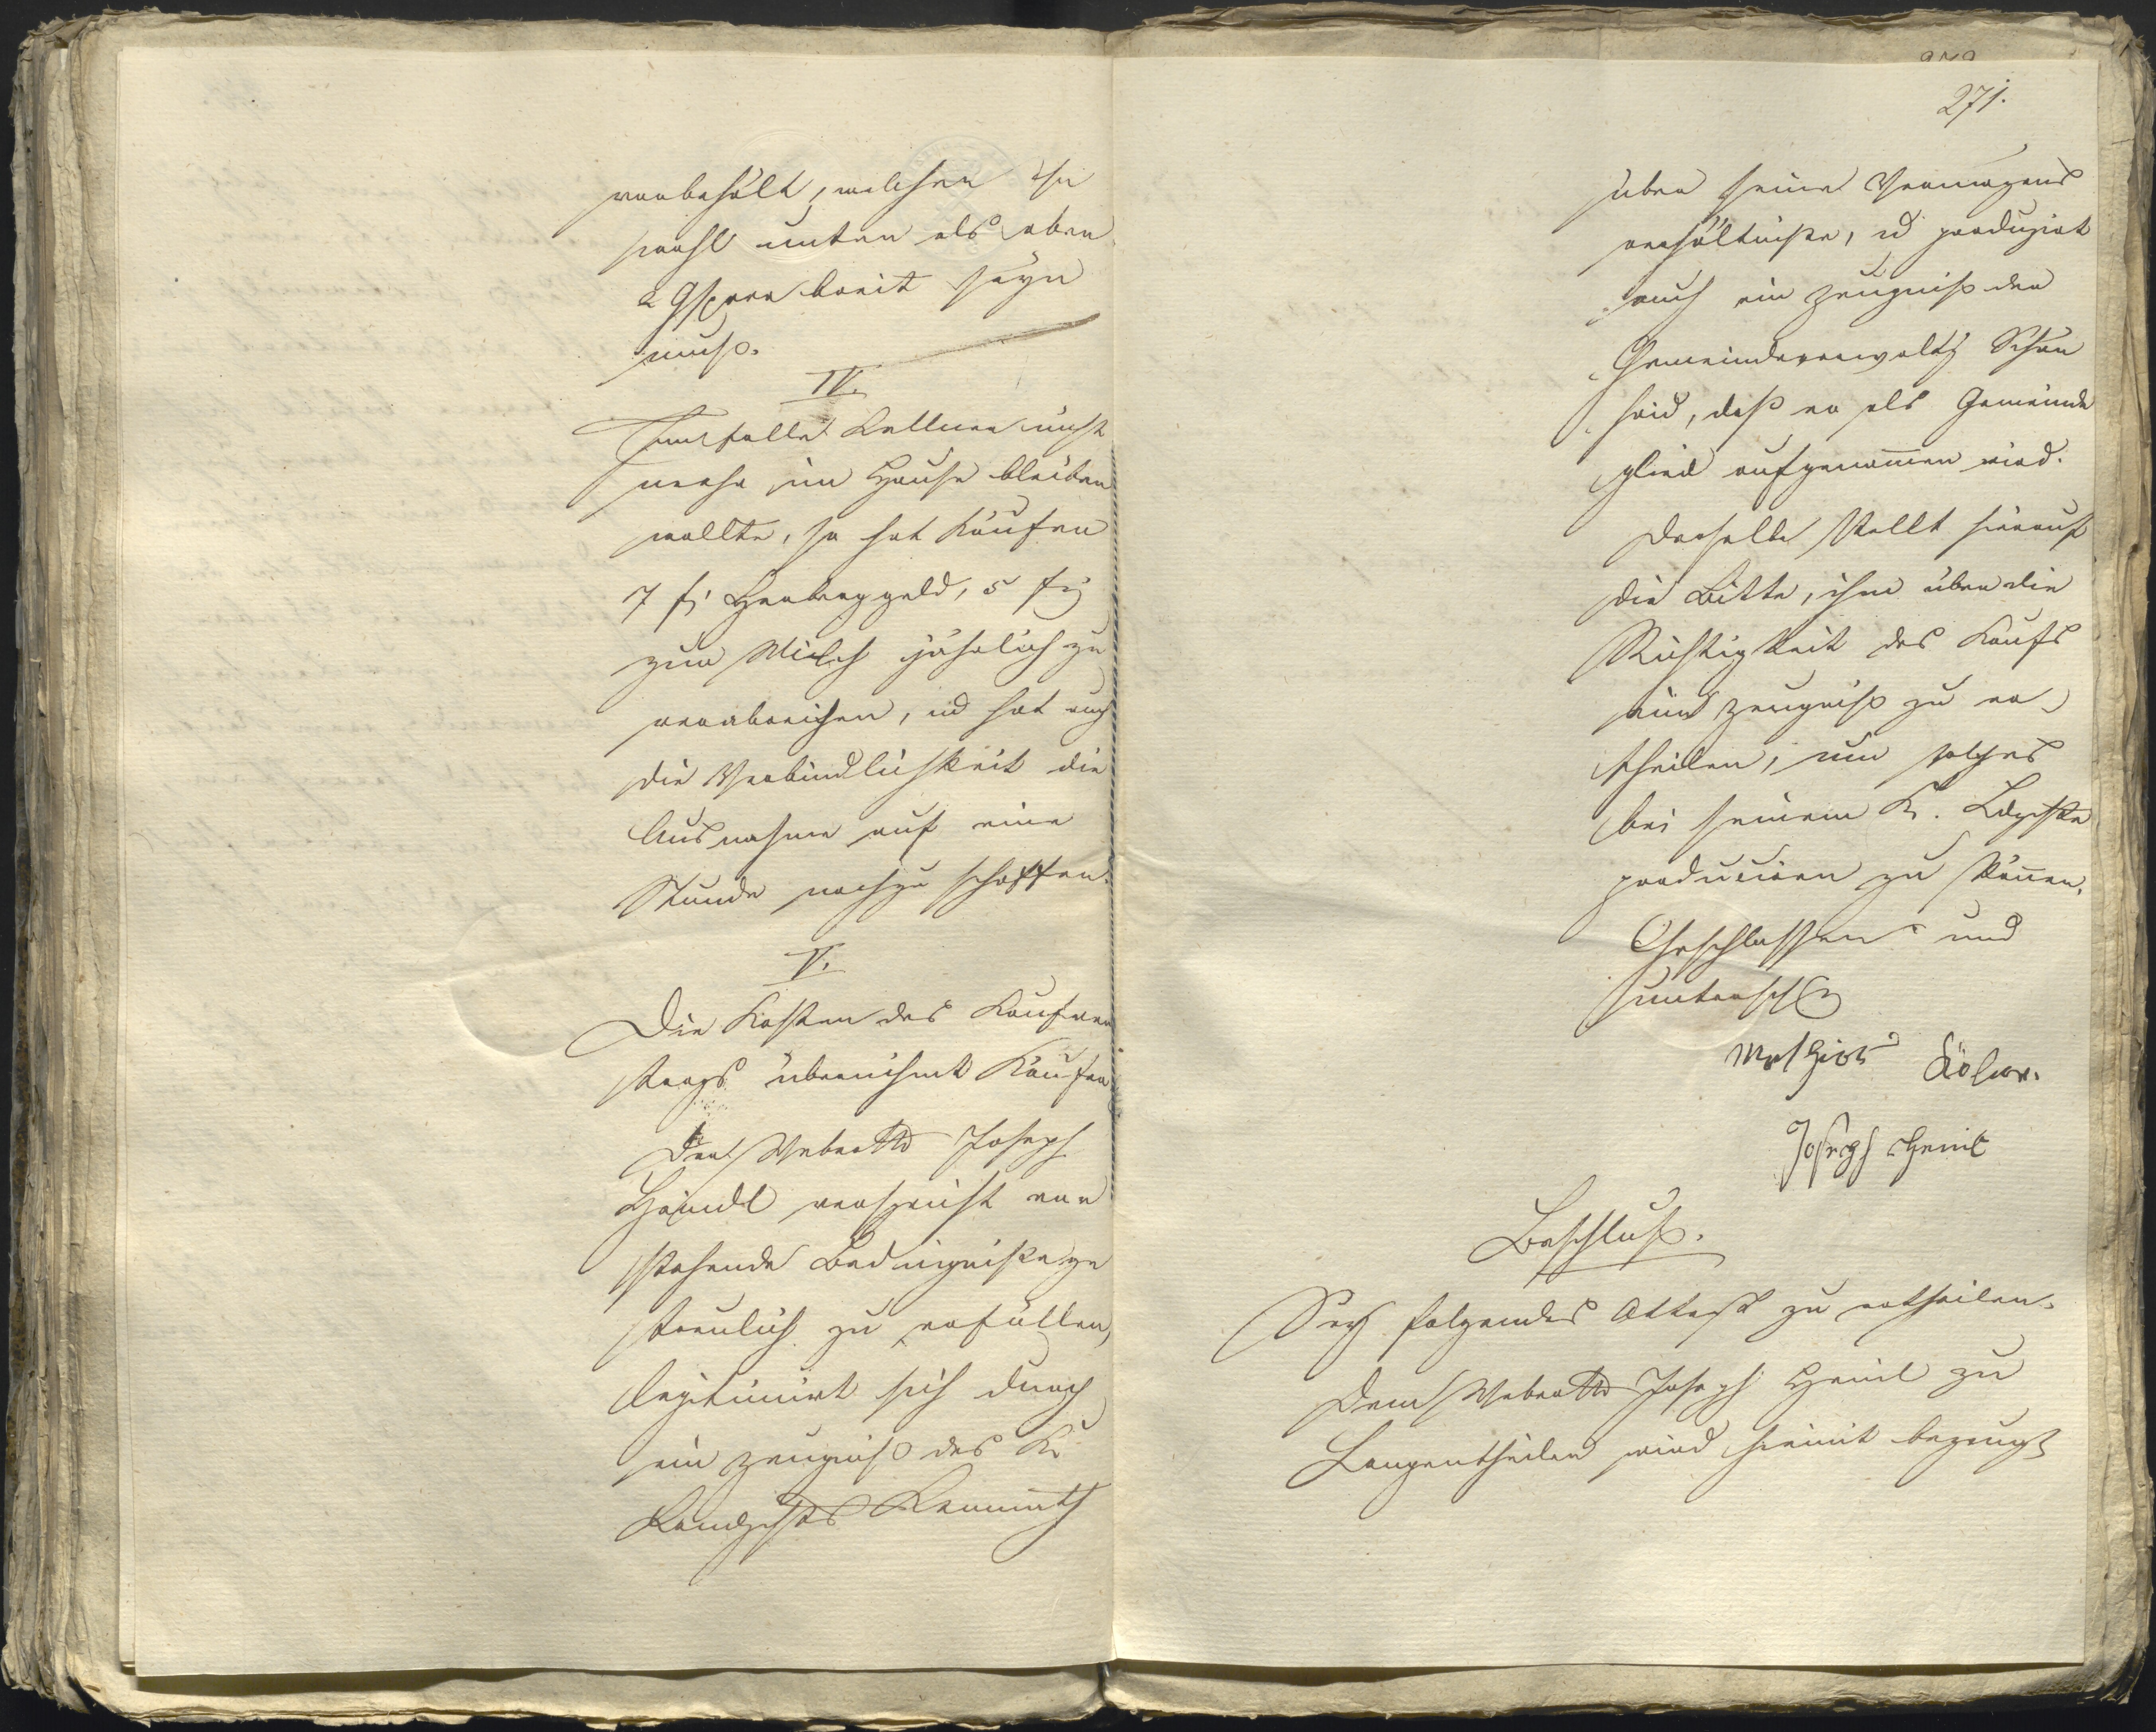 vorbehält, welcher so
wohl unten als oben
2 Gsparr breit seyn
muß.
IV.
Im falle Kellner nicht
mehr im Hause bleiben
wollte, so hat Käufer
7 f Herberggeld, 5 f
zur Milch jährlich zu
verabreichen, und hat auch
die Verbindlichkeit die
Ausnahme auf eine
Stunde nachzuschaffen.
V.
Die Kosten des Kaufver
trags übernihmt Käufer
Der Weber Joseph
Haindl verspricht vor
stehende Bedingniße ge
treulich zu erfüllen,
legitimirt sich durch
ein Zeugniß des K.
Landgchts Kemnath
271.
über seine Vermögens
verhältniße, und produzirt
auch ein Zeugniß der
Gemeindeverwaltg Schön
haid, daß er als Gemeinde
glied aufgenommen wird.
Derselbe stellt hierauf
die Bitte, ihm über die
Richtigkeit des Kaufs
ein Zeugniß zu er
theilen, um solches
bei seinem K. Ldgchte
produciren zu können.
Geschlossen und
unterschr
Mathias
Joseph Heinl
Beschluß.
Sey folgendes Attest zu ertheilen.
Dem Weber Joseph Heinl zu
Langentheilen wird hiemit bezeugt